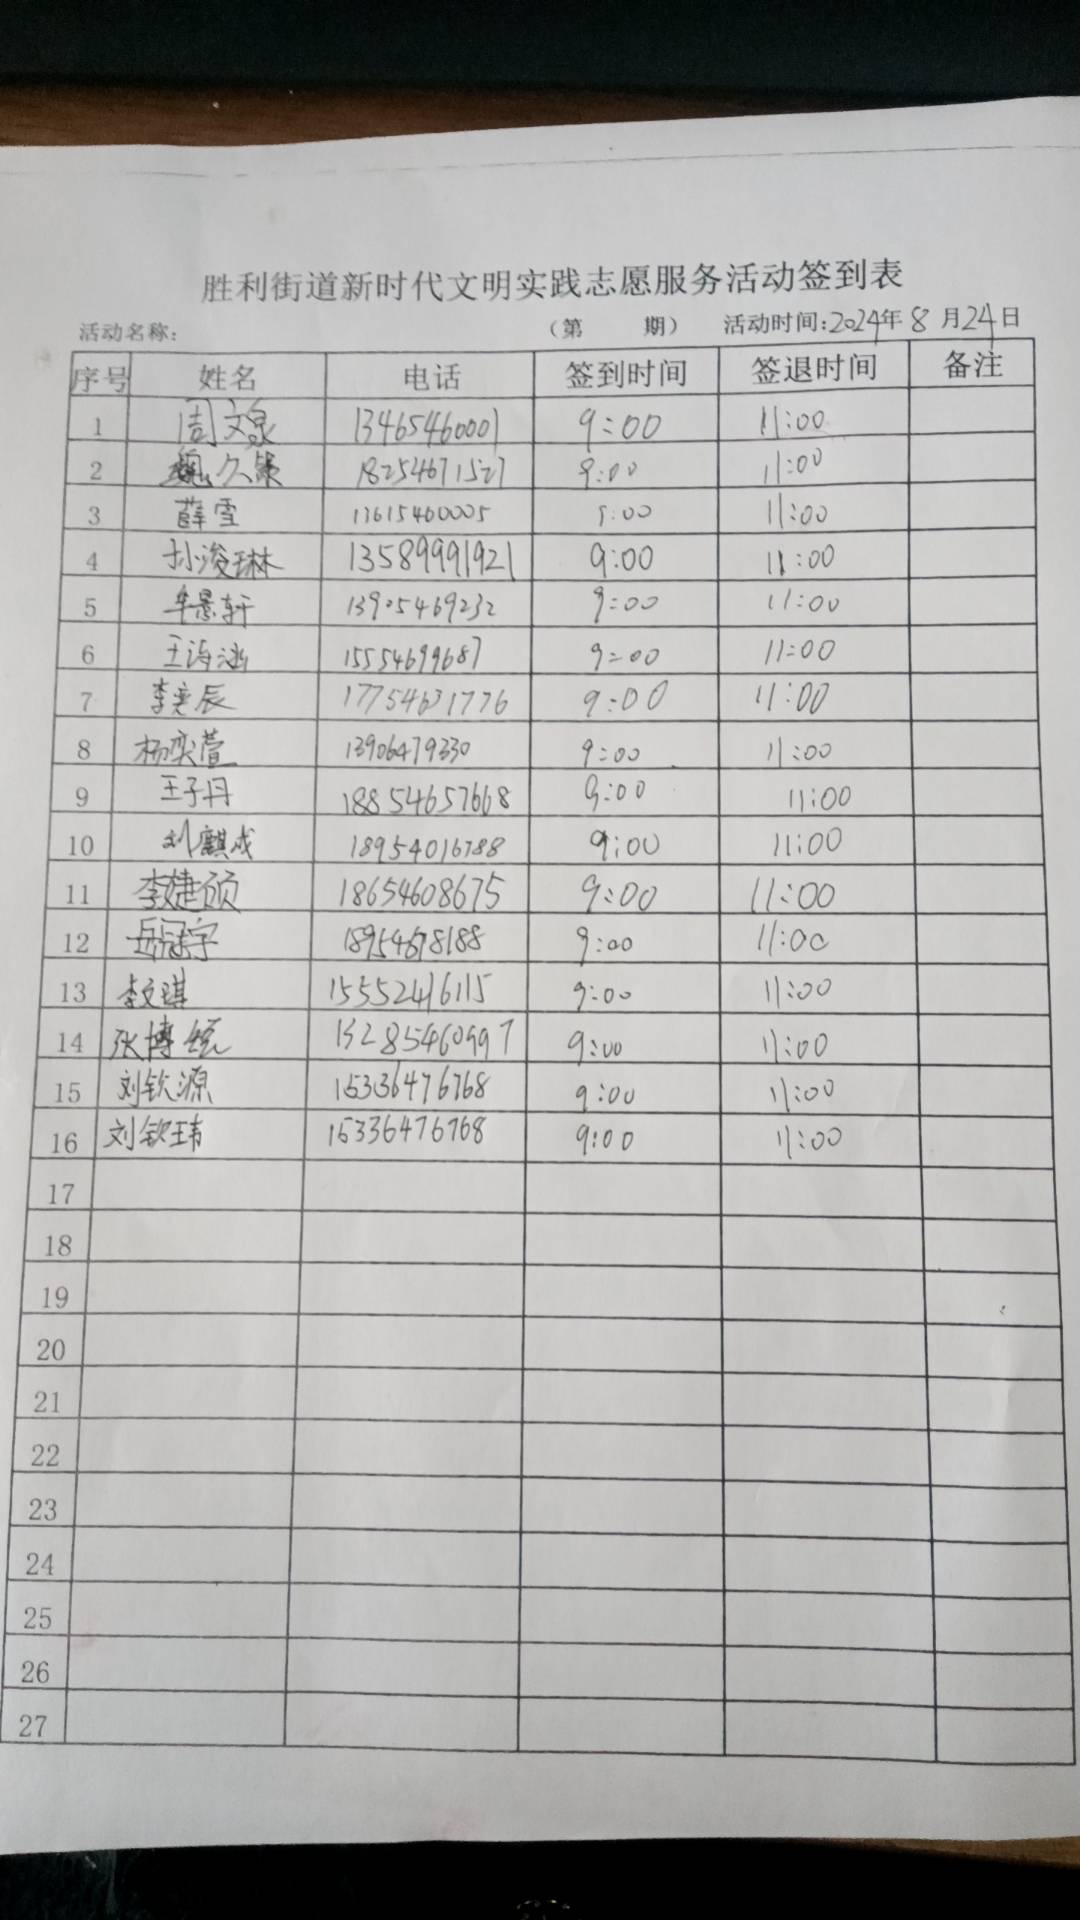 胜利街道新时代文明实践志愿服务活动签到表
活动名称: （第 期） 活动时间:2024年8月24日
序号 姓名 电话 签到时间 签退时间 备注
1 周文泉 13465460001 9:00 11:00
2 魏久 18254671527 9:00 11:00
3 薛雪 13615460005 9:00 11:00
4 孙浚琳 13589991921 9:00 11:00
5 牟景轩 13905469232 9:00 11:00
6 王诗涵 15554699687 9:00 11:00
7 李奕辰 17754631776 9:00 11:00
8 杨奕萱 13906479330 9:00 11:00
9 王子丹 18854657668 9:00 11:00
10 刘麒成 18954016788 9:00 11:00
11 李婕硕 18654608675 9:00 11:00
12 岳冠宇 18954678188 9:00 11:00
13 李文琪 15552416115 9:00 11:00
14 张博 13285460997 9:00 11:00
15 刘钦源 15336476768 9:00 11:00
16 刘钦玮 15336476768 9:00 11:00
17
18
19
20
21
22
23
24
25
26
27